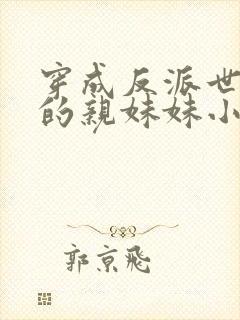 穿成反派世
的亲妹妹小
郭京飛